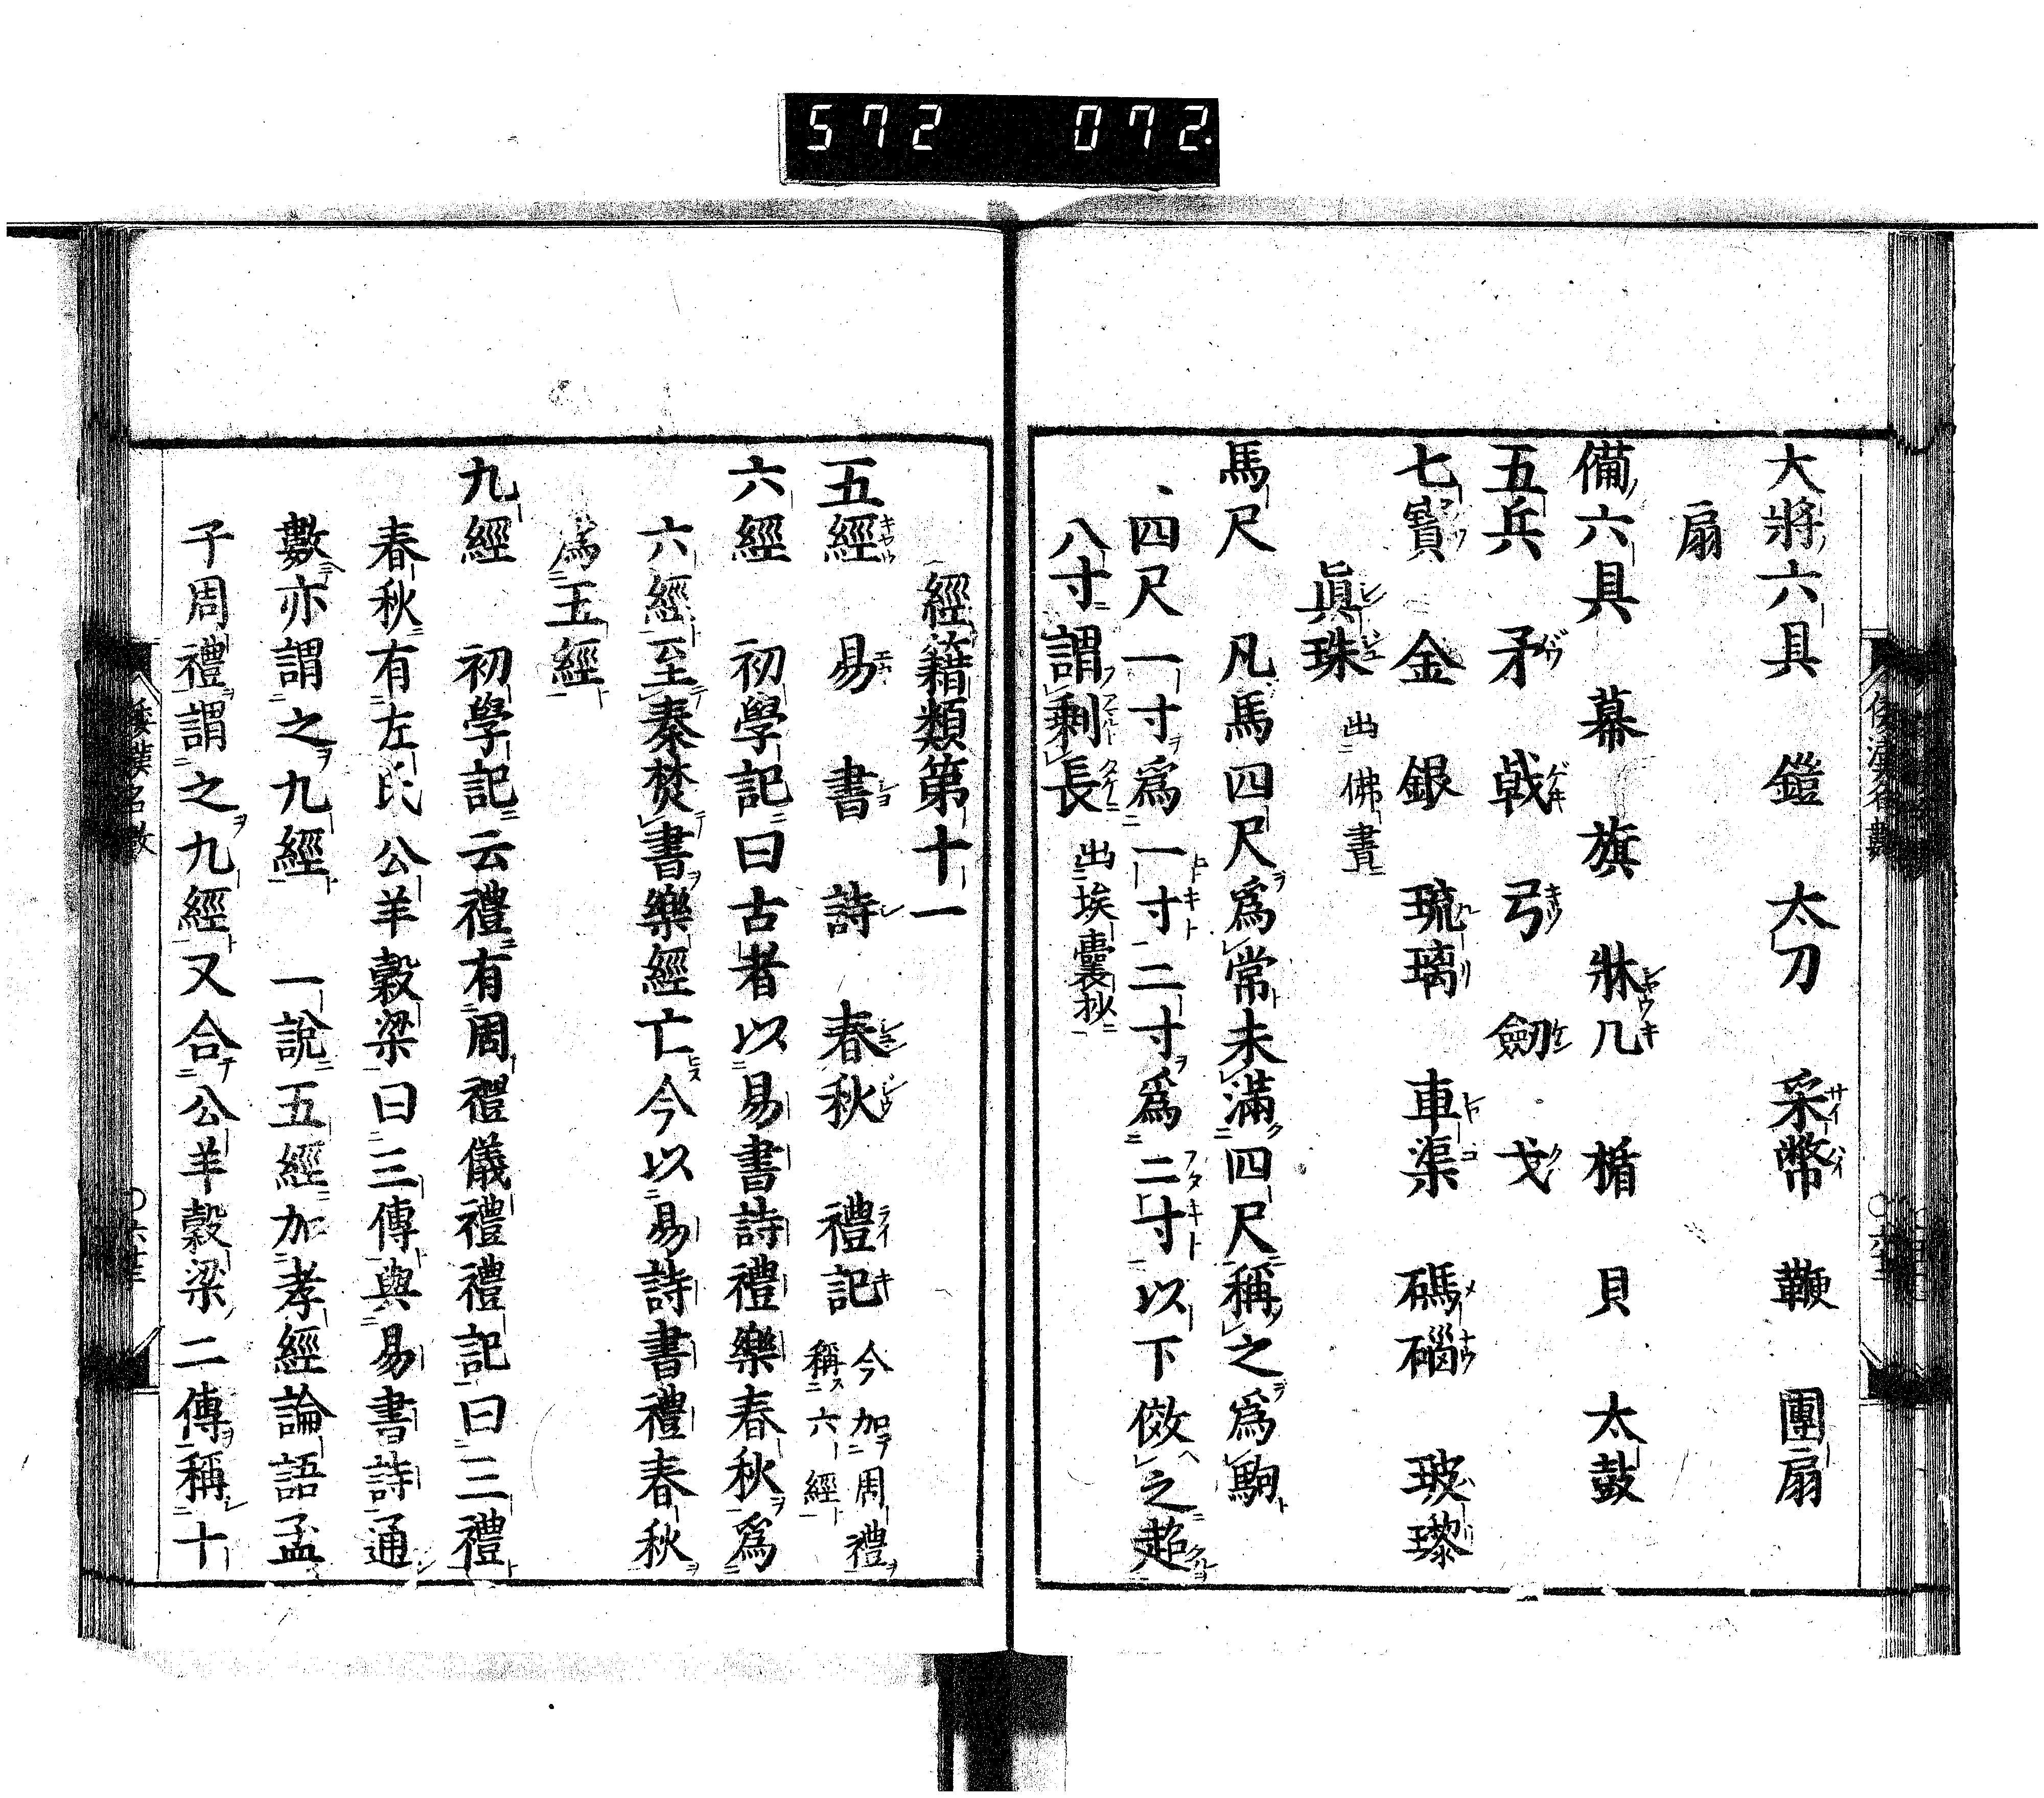 572 072
大將六具 鎧 太刀 采幣 鞭 團扇
扇
備六具 幕 旗 牀几 楯 貝 太鼓
五兵 矛 戟 弓 劒 戈
七寳 金 銀 琉璃 車渠 碼碯 玻瓈
眞珠 出佛書
馬尺 凡馬四尺爲常未滿四尺稱之爲駒
四尺一寸爲一寸二寸爲二寸以下倣之超
八寸謂剩長 出埃囊抄
經籍類第十一
五經 易 書 詩 春秋 禮記 今加周禮
稱六經
六經 初學記曰古者以易書詩禮樂春秋爲
六經至秦焚書樂經亡今以易詩書禮春秋
爲五經
九經 初學記云禮有周禮儀禮禮記曰三禮
春秋有左氏公羊穀梁曰三傳與易書詩通
數亦謂之九經 一說五經加孝經論語孟
子周禮謂之九經又合公羊穀梁二傳稱十
倭漢名數